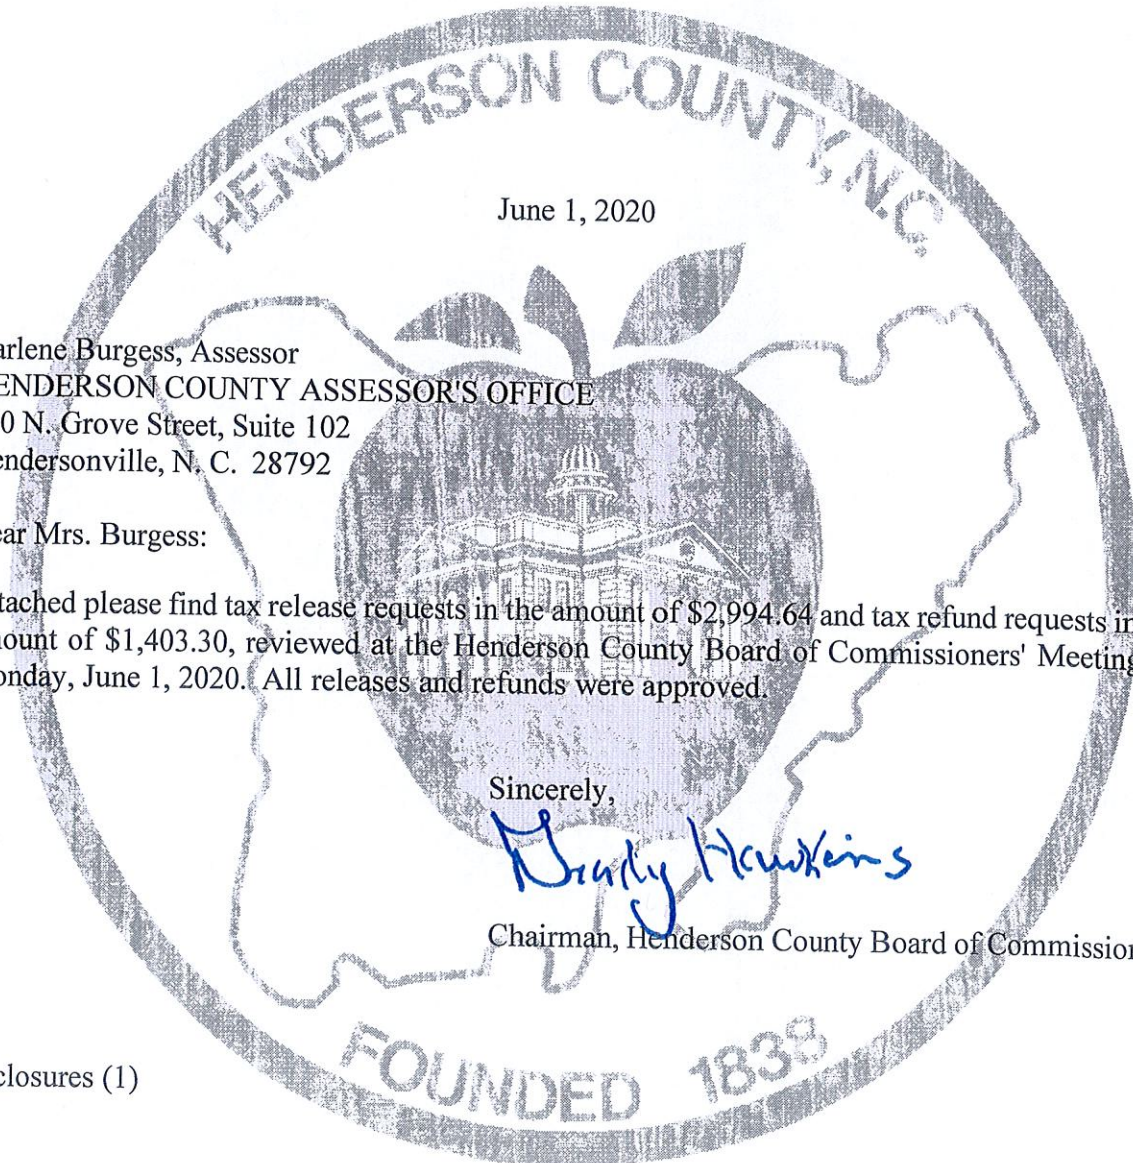 HENDERSON COUNTY, N.C.
June 1, 2020
arlene Burgess, Assessor
ENDERSON COUNTY ASSESSOR'S OFFICE
0 N. Grove Street, Suite 102
endersonville, N. C. 28792
ear Mrs. Burgess:
tached please find tax release requests in the amount of $2,994.64 and tax refund requests in
ount of $1,403.30, reviewed at the Henderson County Board of Commissioners' Meeting
onday, June 1, 2020. All releases and refunds were approved.
Sincerely,
Grady Hawkins
Chairman, Henderson County Board of Commission
closures (1)
FOUNDED 1838